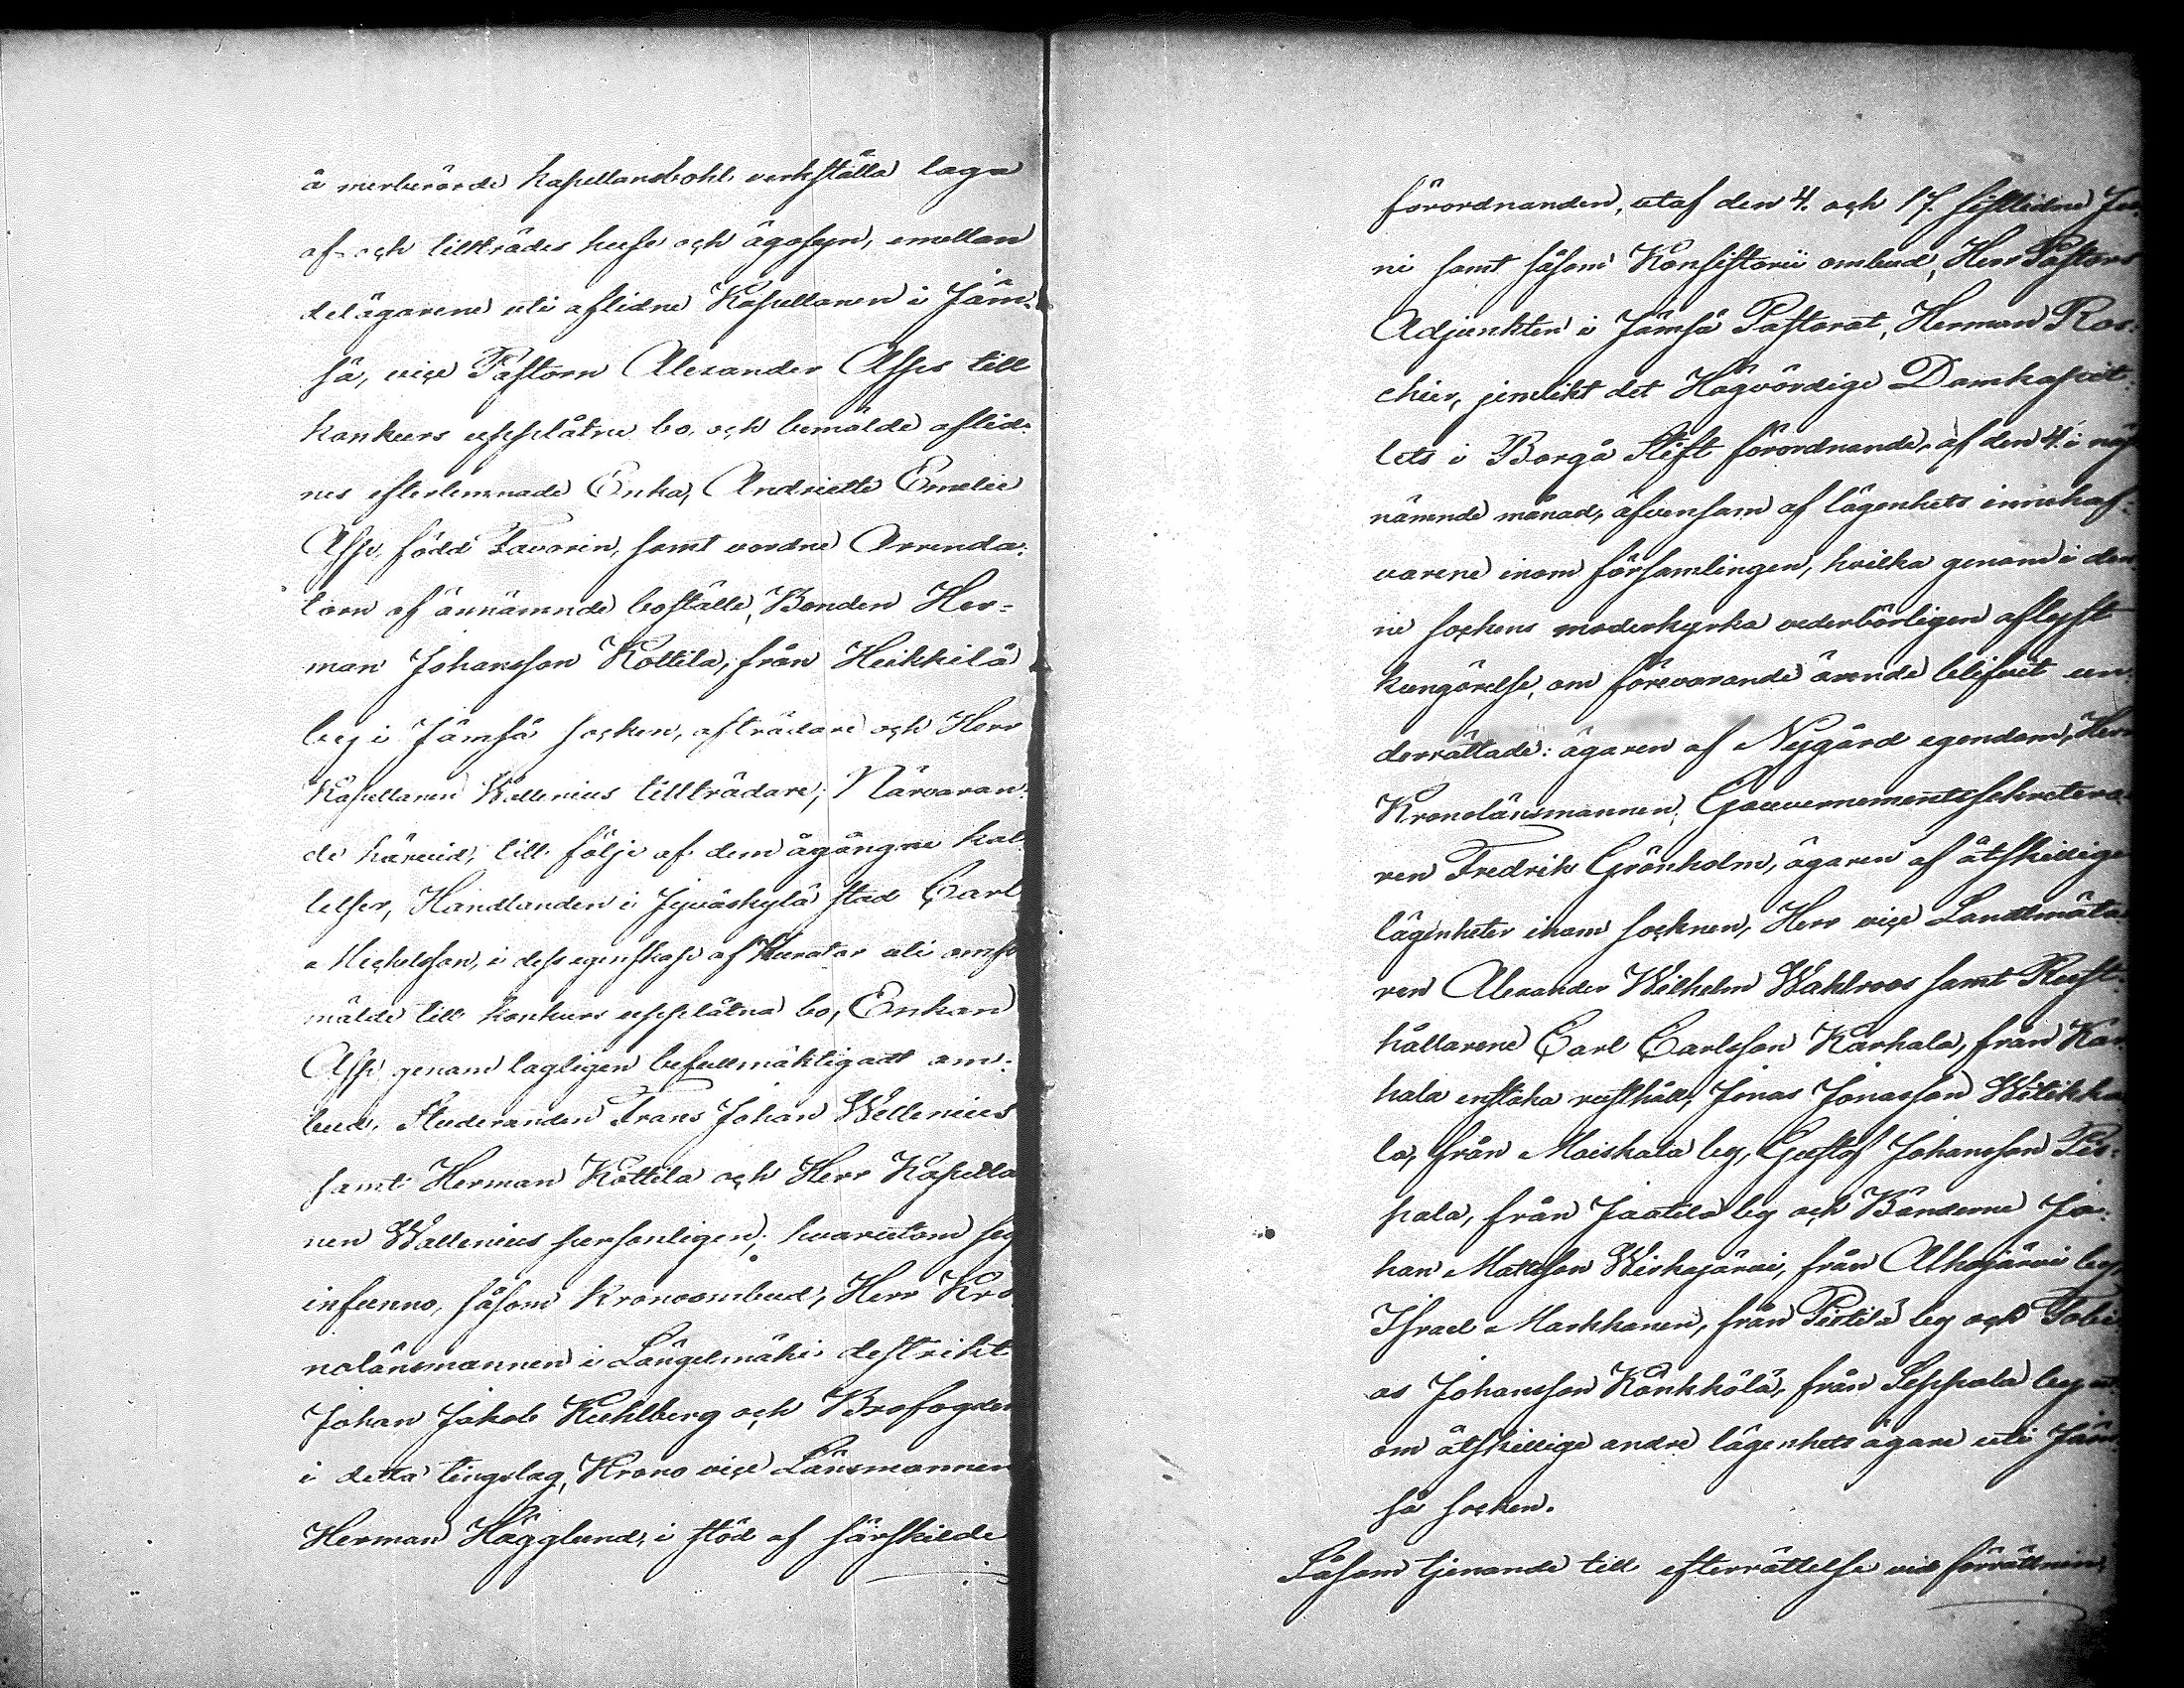 å merberörde kapellansbohl verkställa laga
af- och tillträdes huse och ägosyn, emellan
delägarene uti aflidne Kapellanen i Jäm-
sä, vice Pastorn Alexander Asps till
konkurs upplåtne bo, och bemälde aflid-
nes efterlemnade Enka, Andriette Emelie
Asp, född Favorin, samt vordne Arrenda-
torn af ännämnde boställe, Bonden Her-
man Johansson Kottila, från Heikkilä
by i Jämsä socken, afträdare och Herr
Kapellanen Wallenius tillträdare; Närvaran-
de härvid, till följe af dem ågångne kal-
lelser, Handlanden i Jyväskylä stad Carl
Michelsson, i dess egenskap af Kurator uti omför-
mälde till konkurs upplåtna bo, Enkan
Asp genom lagligen befullmäktigadt om-
bud, Studeranden Frans Johan Wellenius
samt Herman Kottila och Herr Kapella
nen Wallenius personligen; hvarutom sig
infunno, såsom Kronoombud, Herr Kro
nolänsmannen i Längelmäki distrikt
Johan Jakob Kuhlberg och Brofogden
i detta tingslag, Krono vice Länsmannen
Herman Hägglund, i stöd af särskilde
förordnanden, utaf den 4. och 17. sistledne Ju-
ni samt såsom Konsistorii ombud, Herr Pastors
Adjunkten i Jämsä Pastorat, Herman Ros-
chier, jemlikt det Högvördige Domkapit-
lets i Borgå Stift förordnande, af den 4. i näst
nämnde månad, äfvensom af lägenhets innehaf-
varene inom församlingen, hvilka genom i den-
ne sockens moderkyrka vederbörligen aflyst
kungörelse, om förevarande ärende blifvit un-
derrättade: ägaren af Nygård egendom, Herr
Kronolänsmannen, Gouvernementssekretera-
ren Fredrik Grönholm, ägaren af åtskillige
lägenheter inom socknen, Herr vice Landtmäta-
ren Alexander Wilhelm Wahlroos samt Rust-
hållarene Carl Carlsson Karhala, från Kar-
hala enstaka rusthåll, Jonas Jonasson Witikka-
la, från Maiskala by, Gustaf Johansson Pis-
pala, från Jaatila by och Bönderne Jo-
han Mattsson Wirkajärvi, från Alhojärvi by,
Israel Markkanen, från Pietilä by och Tobi-
as Johansson Könkkölä, från Seppola by ut-
om åtskillige andre lägenhets ägare uti Jäm-
sä socken.
Såsom tjenande till efterrättelse vid förrättnin-